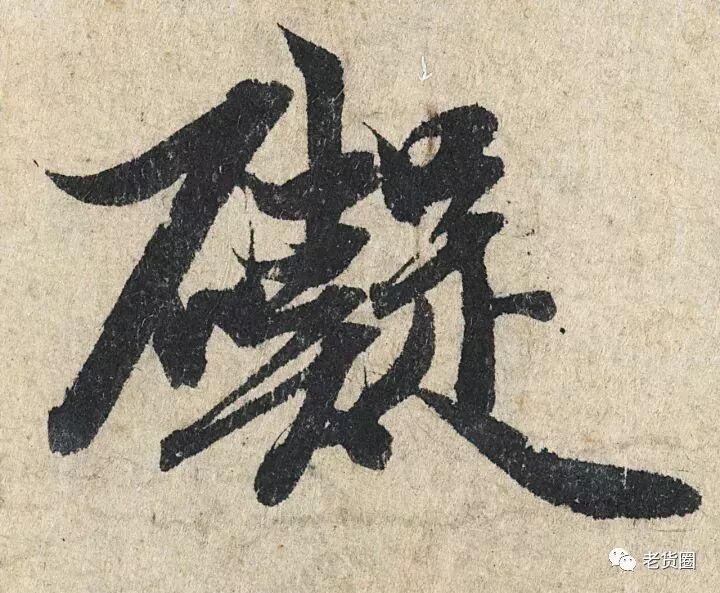 礙
老货圈